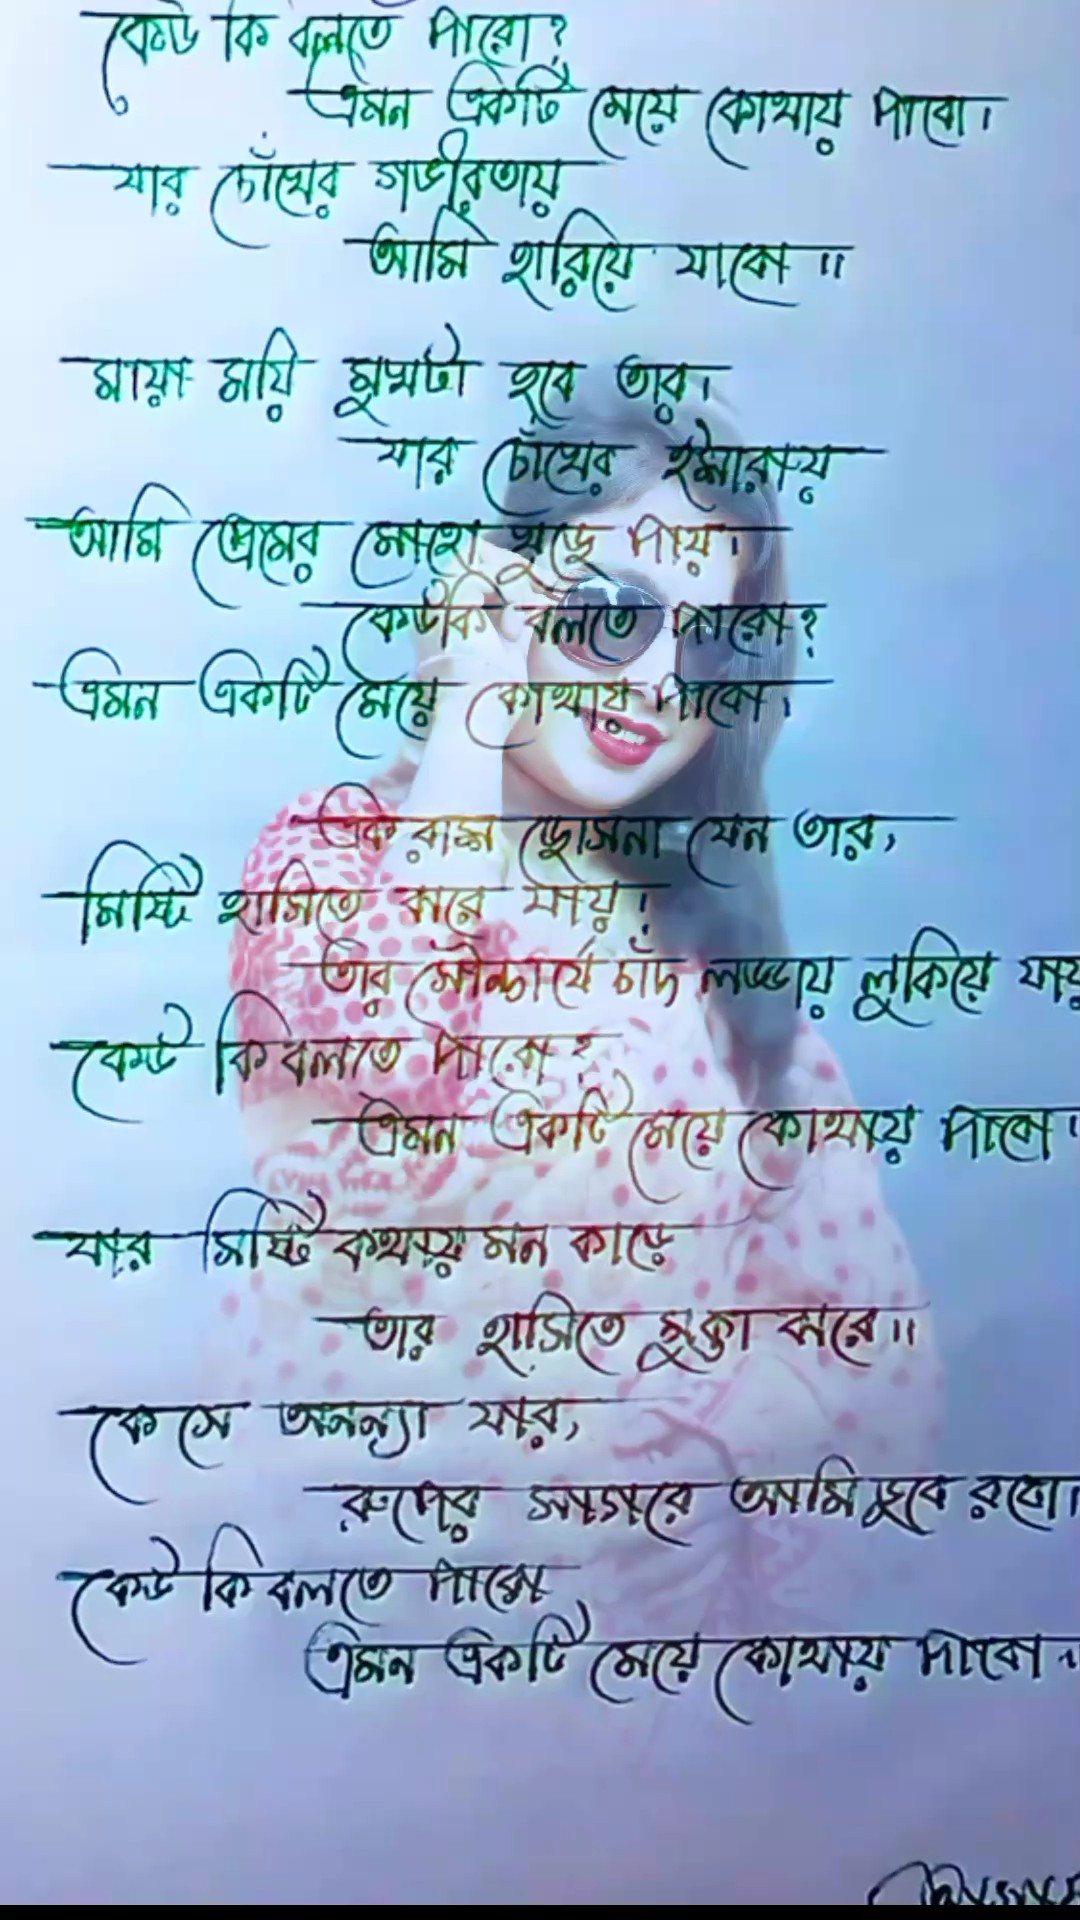 কেউ কি বলতে পারো?
এমন একটি মেয়ে কোথায় পাবো।
যার চোঁখের গভীরতায়
আমি হারিয়ে যাবো॥
মায়া ময়ি মুখটা হবে তার।
যার চোঁখের ইশারায়
আমি প্রেমের মোহো খুজে পায়।
কেউকি বলতে পারো?
এমন একটি মেয়ে কোথায় পাবো।
এক রাশ জোসনা যেন তার,
মিষ্টি হাসিতে ঝরে যায়।
তার সৌন্দার্যে চাঁদ লজ্জায় লুকিয়ে যায়
কেউ কি বলতে পারো?
এমন একটি মেয়ে কোথায় পাবো।
যার মিষ্টি কথায় মন কাড়ে
তার হাসিতে মুক্তা ঝরে॥
কে সে অনন্যা যার,
রুপের সাগরে আমি ডুবে রবো।
কেউ কি বলতে পারো
এমন একটি মেয়ে কোথায় পাবো।